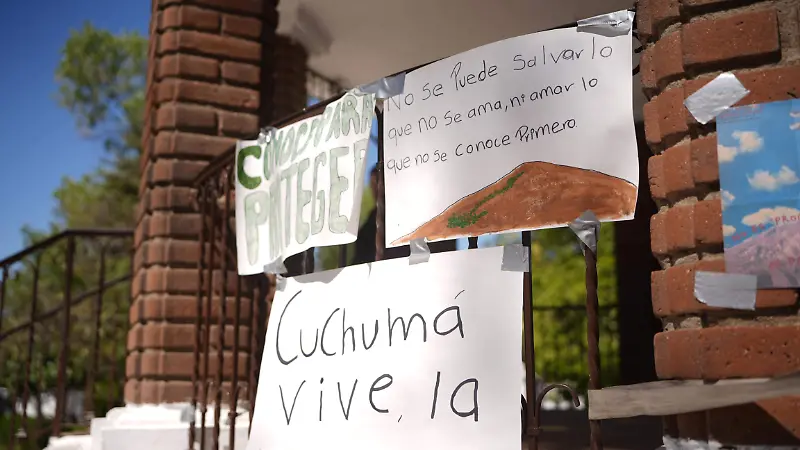 Conocer PARA
PROTEGER
No se puede salvarlo
que no se ama, ni amar lo
que no se conoce Primero.
Cuchumá
vive, la